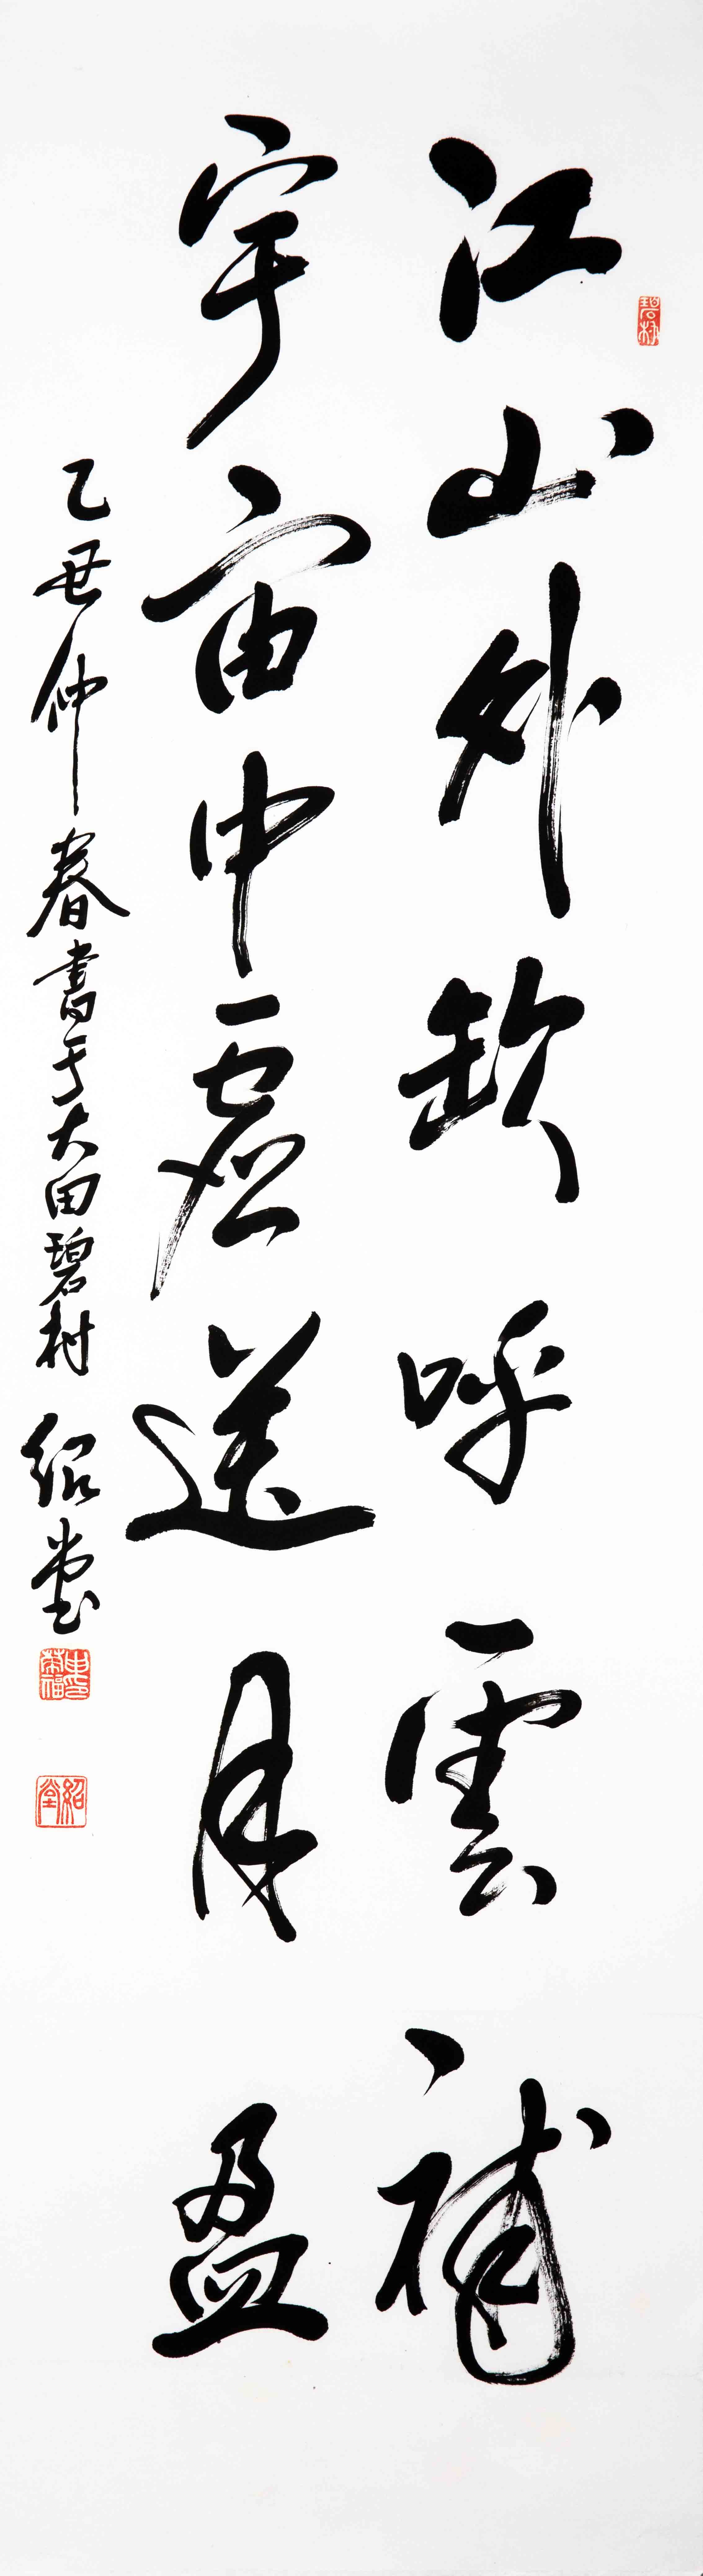 碧村
江山外缺呼雲補
宇宙中虛送月盈
乙丑仲春書于大田碧村 紹堂
紹堂